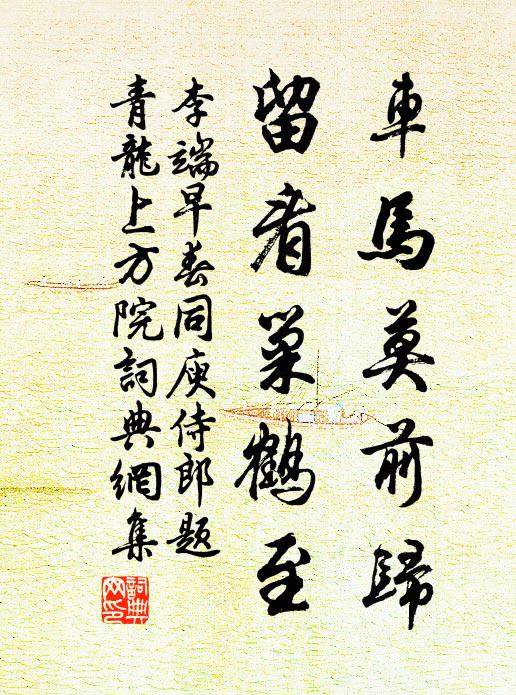 車馬莫前歸
留看巢鶴至
李端早春同庾侍郎題
青龍上方院詞典網集
詞典网印